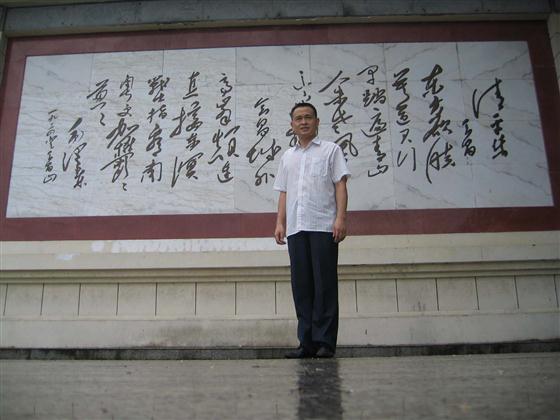 清平乐
会昌
东方欲晓
莫道君行
早踏遍青山
人未老风
景这边
会昌城外
高峰颠连
直接东溟
战士指看南
粤更加郁々
葱々
毛泽东
一九三四